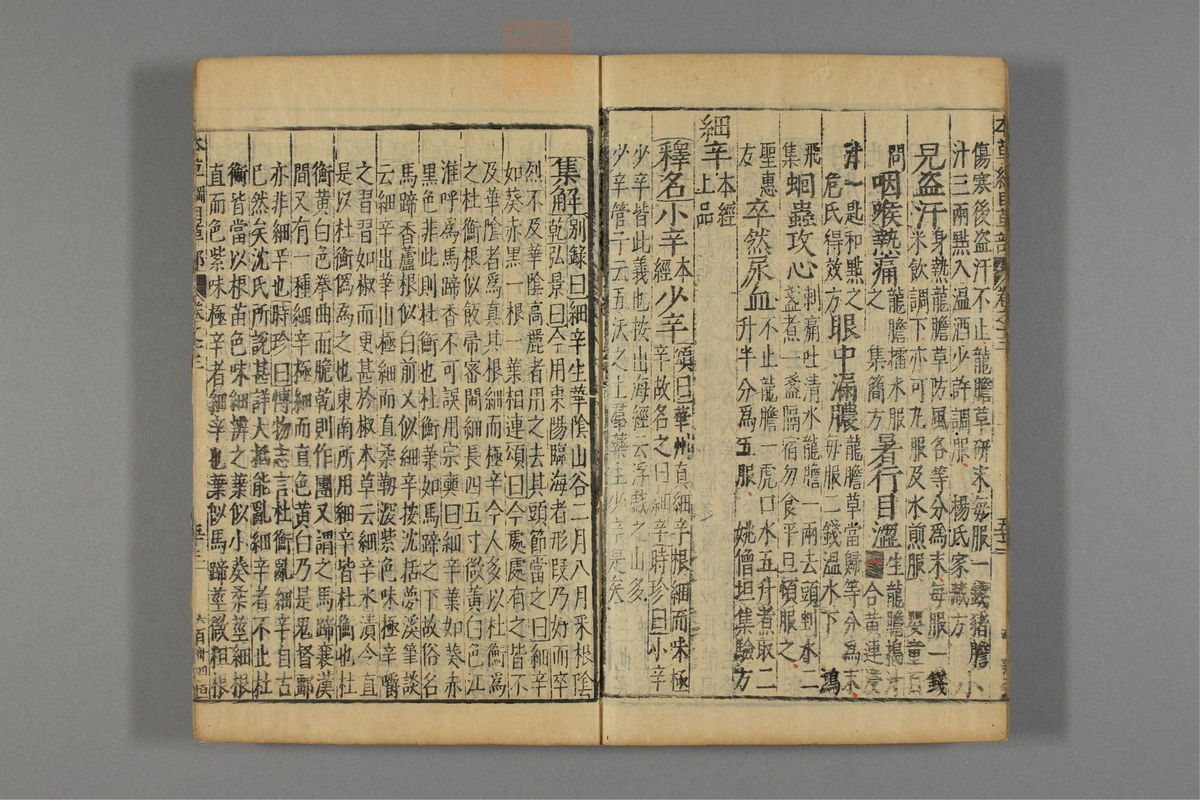 傷寒後盜汗不止龍膽草研末每服一錢猪膽
汁三兩點入溫酒少許調服 楊氏家藏方 小
兒盜汗身熱龍膽草防風各等分爲末每服一錢
米飲調下亦可丸服及水煎服 嬰童百
問 咽喉熱痛龍膽擂水服
之 集簡方 暑行目澀生龍膽搗汁
合黃連浸
汁一匙和點之
危氏得效方 眼中漏膿龍膽草當歸等分爲末
每服二錢溫水下 鴻
飛
集 蛔蟲攻心刺痛吐清水龍膽一兩去頭剉水二
盞煮一盞隔宿勿食平旦頓服之
聖惠
方 卒然尿血不止龍膽一虎口水五升煮取二
升半分爲五服 姚僧坦集驗方
細辛本經
上品
釋名小辛本
經 少辛頌曰華州真細辛根細而味極
辛故名之曰細辛時珍曰小辛
少辛皆此義也按山海經云浮戲之山多
少辛管子云五沃之土群藥生少辛是矣
集解別錄曰細辛生華陰山谷二月八月采根陰
乾弘景曰今用東陽臨海者形段乃好而辛
烈不及華陰高麗者用之去其頭節當之曰細辛
如葵赤黑一根一葉相連頌曰今處處有之皆不
及華陰者爲真其根細而極辛今人多以杜衡爲
之杜衡根似飯帚密鬧細長四五寸微黃白色江
淮呼爲馬蹄香不可誤用宗奭曰細辛葉如葵赤
黑色非此則杜衡也杜衡葉如馬蹄之下故俗名
馬蹄香蘆根似白前又似細辛按沈括夢溪筆談
云細辛出華山極細而直柔韌深紫色味極辛嚼
之習習如椒而更甚於椒本草云細辛水漬令直
是以杜衡僞爲之也東南所用細辛皆杜衡也杜
衡黃白色拳曲而脆乾則作團又謂之馬蹄襄漢
間又有一種細辛極細而直色黃白乃是鬼督郵
亦非細辛也時珍曰博物志言杜衡亂細辛自古
已然矣沈氏所說甚詳大抵能亂細辛者不止杜
衡皆當以根苗色味細辨之葉似小葵柔莖細根
直而色紫味極辛者細辛也葉似馬蹄莖微粗根